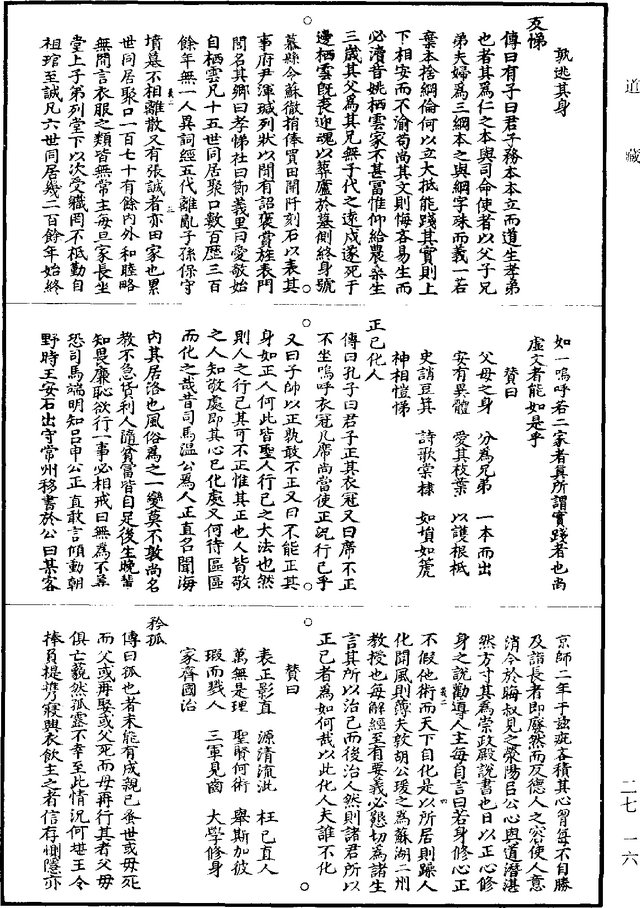 孰逃其身
友悌
傳曰有子曰君子務本本立而道生孝弟
也者其為仁之本與司命使者以父子兄
弟夫婦為三綱本之與綱字殊而義一若
棄本捨綱倫何以立大抵能踐其實則上
下相安而不渝苟尚其文則悔吝易生而
必瀆昔姚栖雲家不甚冨惟仰給農桑生
三歲其父為其兄無子代之遠戍遂死于
邊栖雲旣丧迎魂以葬廬於墓側終身號
慕縣令蘇徹捐俸買田開阡刻石以表其
事府尹渾瑊列狀以聞有詔褒賞旌表門
閭名其鄉曰孝悌社曰節義里曰愛敬始
自栖雲凡十五世同居聚口數百歷三百
餘年無一人異詞經五代離亂子孫保守
墳墓不相離散又有張誠者亦田家也累
世同居聚口一百七十有餘內外和睦略
無間言衣服之類皆無常主每旦家長坐
堂上子弟列堂下以次受職罔不祗勤自
祖琯至誠凡六世同居幾二百餘年始終
如一嗚呼若二家者眞所謂實踐者也尚
虛文者能如是乎
贊曰
父母之身　分為兄弟　一本而出
安有異體　愛其枝葉　以護根柢
史誚豆萁　詩歌棠棣　如塤如篪
神相愷悌
正己化人
傳曰孔子曰君子正其衣冠又曰席不正
不坐嗚呼衣冠几席尚當使正況行己乎
又曰子帥以正孰敢不正又曰不能正其
身如正人何此皆聖人行己之大法也然
則人之行己其可不正惟其正也人皆敬
之人知敬處即其心已化處又何待區區
而化之哉昔司馬溫公為人正直名聞海
內其居洛也風俗為之一變莫不敦尚名
教不急貨利人隨貧富皆自足後生晚輩
知畏廉恥欲行一事必相戒曰無為不善
恐司馬端明知呂申公正直敢言傾動朝
野時王安石出守常州移書於公曰某客
京師二年于玆疵吝積其心胷每不自勝
及詣長者即廢然而反德人之容使人意
消今於晦叔見之滎陽呂公心與道潛湛
然方寸其為崇政殿說書也日以正心修
身之說勸導人主每自言曰若身修心正
不假他術而天下自化是以所居則躁人
化聞風則薄夫敦胡公瑗之為蘇湖二州
教授也每解經至有要義必懇切為諸生
言其所以治己而後治人然則諸君所以
正己者為如何哉以此化人夫誰不化
贊曰
表正影直　源清流泚　枉己直人
萬無是理　聖賢何術　舉斯加彼
瑕而戮人　三軍見齒　大學修身
家齊國治
矜孤
傳曰孤也者未能有成親已棄世或母死
而父或再娶或父死而母再行其者父母
俱亡藐然孤露不幸至此情況何堪王令
捧負提攜寢興衣飲主之者信存惻隱亦
道　藏
二七　一六